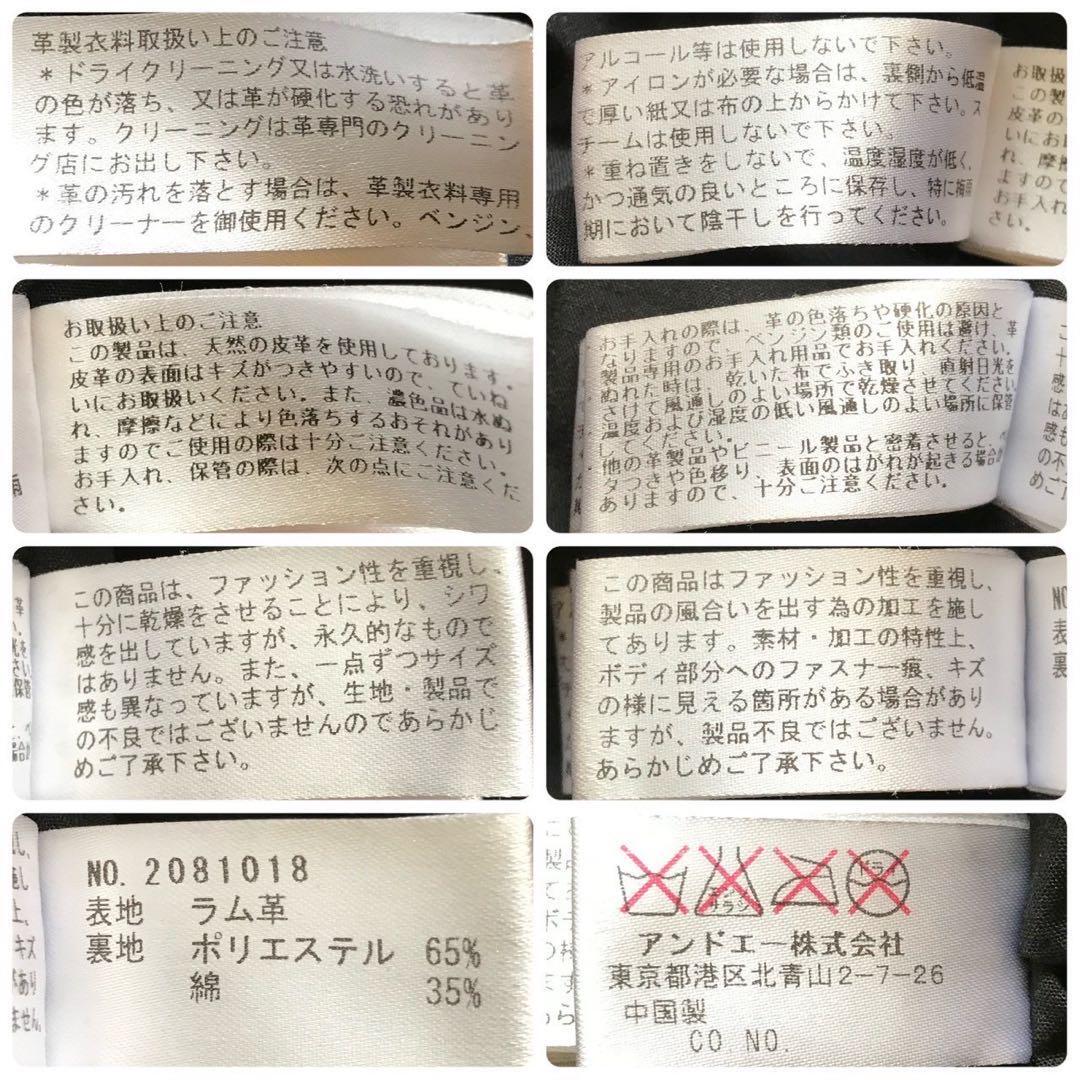 革製衣料取扱い上のご注意
*ドライクリーニング又は水洗いすると革
の色が落ち、又は革が硬化する恐れがあり
ます。クリーニングは革専門のクリーニン
グ店にお出し下さい。
*革の汚れを落とす場合は、革製衣料専用
のクリーナーを御使用ください。ベンジン、
アルコール等は使用しないで下さい。
*アイロンが必要な場合は、裏側から低温
で厚い紙又は布の上からかけて下さい。ス
チームは使用しないで下さい。
*重ね置きをしないで、温度湿度が低く、
かつ通気の良いところに保存し、特に梅雨
期において陰干しを行ってください。
お取扱
この製
皮革の
いにお取
れ、摩擦
ますので
お手入れ
さい。
お取扱い上のご注意
この製品は、天然の皮革を使用しております。
皮革の表面はキズがつきやすいので、ていね
いにお取扱いください。また、濃色品は水ぬ
れ、摩擦などにより色落ちするおそれがあり
ますのでご使用の際は十分ご注意ください。
お手入れ、保管の際は、次の点にご注意くだ
さい。
お手入れの際は、革の色落ちや硬化の原因と
なりますので、ベンジン類のご使用は避け、革
製品専用のお手入れ用品でお手入れください。
ぬれた時は、乾いた布でふき取り、直射日光を
さけて風通しのよい場所で乾燥させてください
温度および湿度の低い風通しのよい場所に保管
してください。
他の革製品やビニール製品と密着させると、ベ
タつきや色移り、表面のはがれが起きる場合が
ありますので、十分ご注意ください。
この商品は、ファッション性を重視し、
十分に乾燥をさせることにより、シワ
感を出していますが、永久的なもので
はありません。また、一点ずつサイズ
感も異なっていますが、生地・製品で
の不良ではございませんのであらかじ
めご了承下さい。
この商品はファッション性を重視し、
製品の風合いを出す為の加工を施し
てあります。素材・加工の特性上、
ボディ部分へのファスナー痕、キズ
の様に見える箇所がある場合があり
ますが、製品不良ではございません。
あらかじめご了承下さい。
NO. 2081018
表地 ラム革
裏地 ポリエステル 65%
綿 35%
ドライ
アンドエー株式会社
東京都港区北青山2-7-26
中国製
CO. NO.